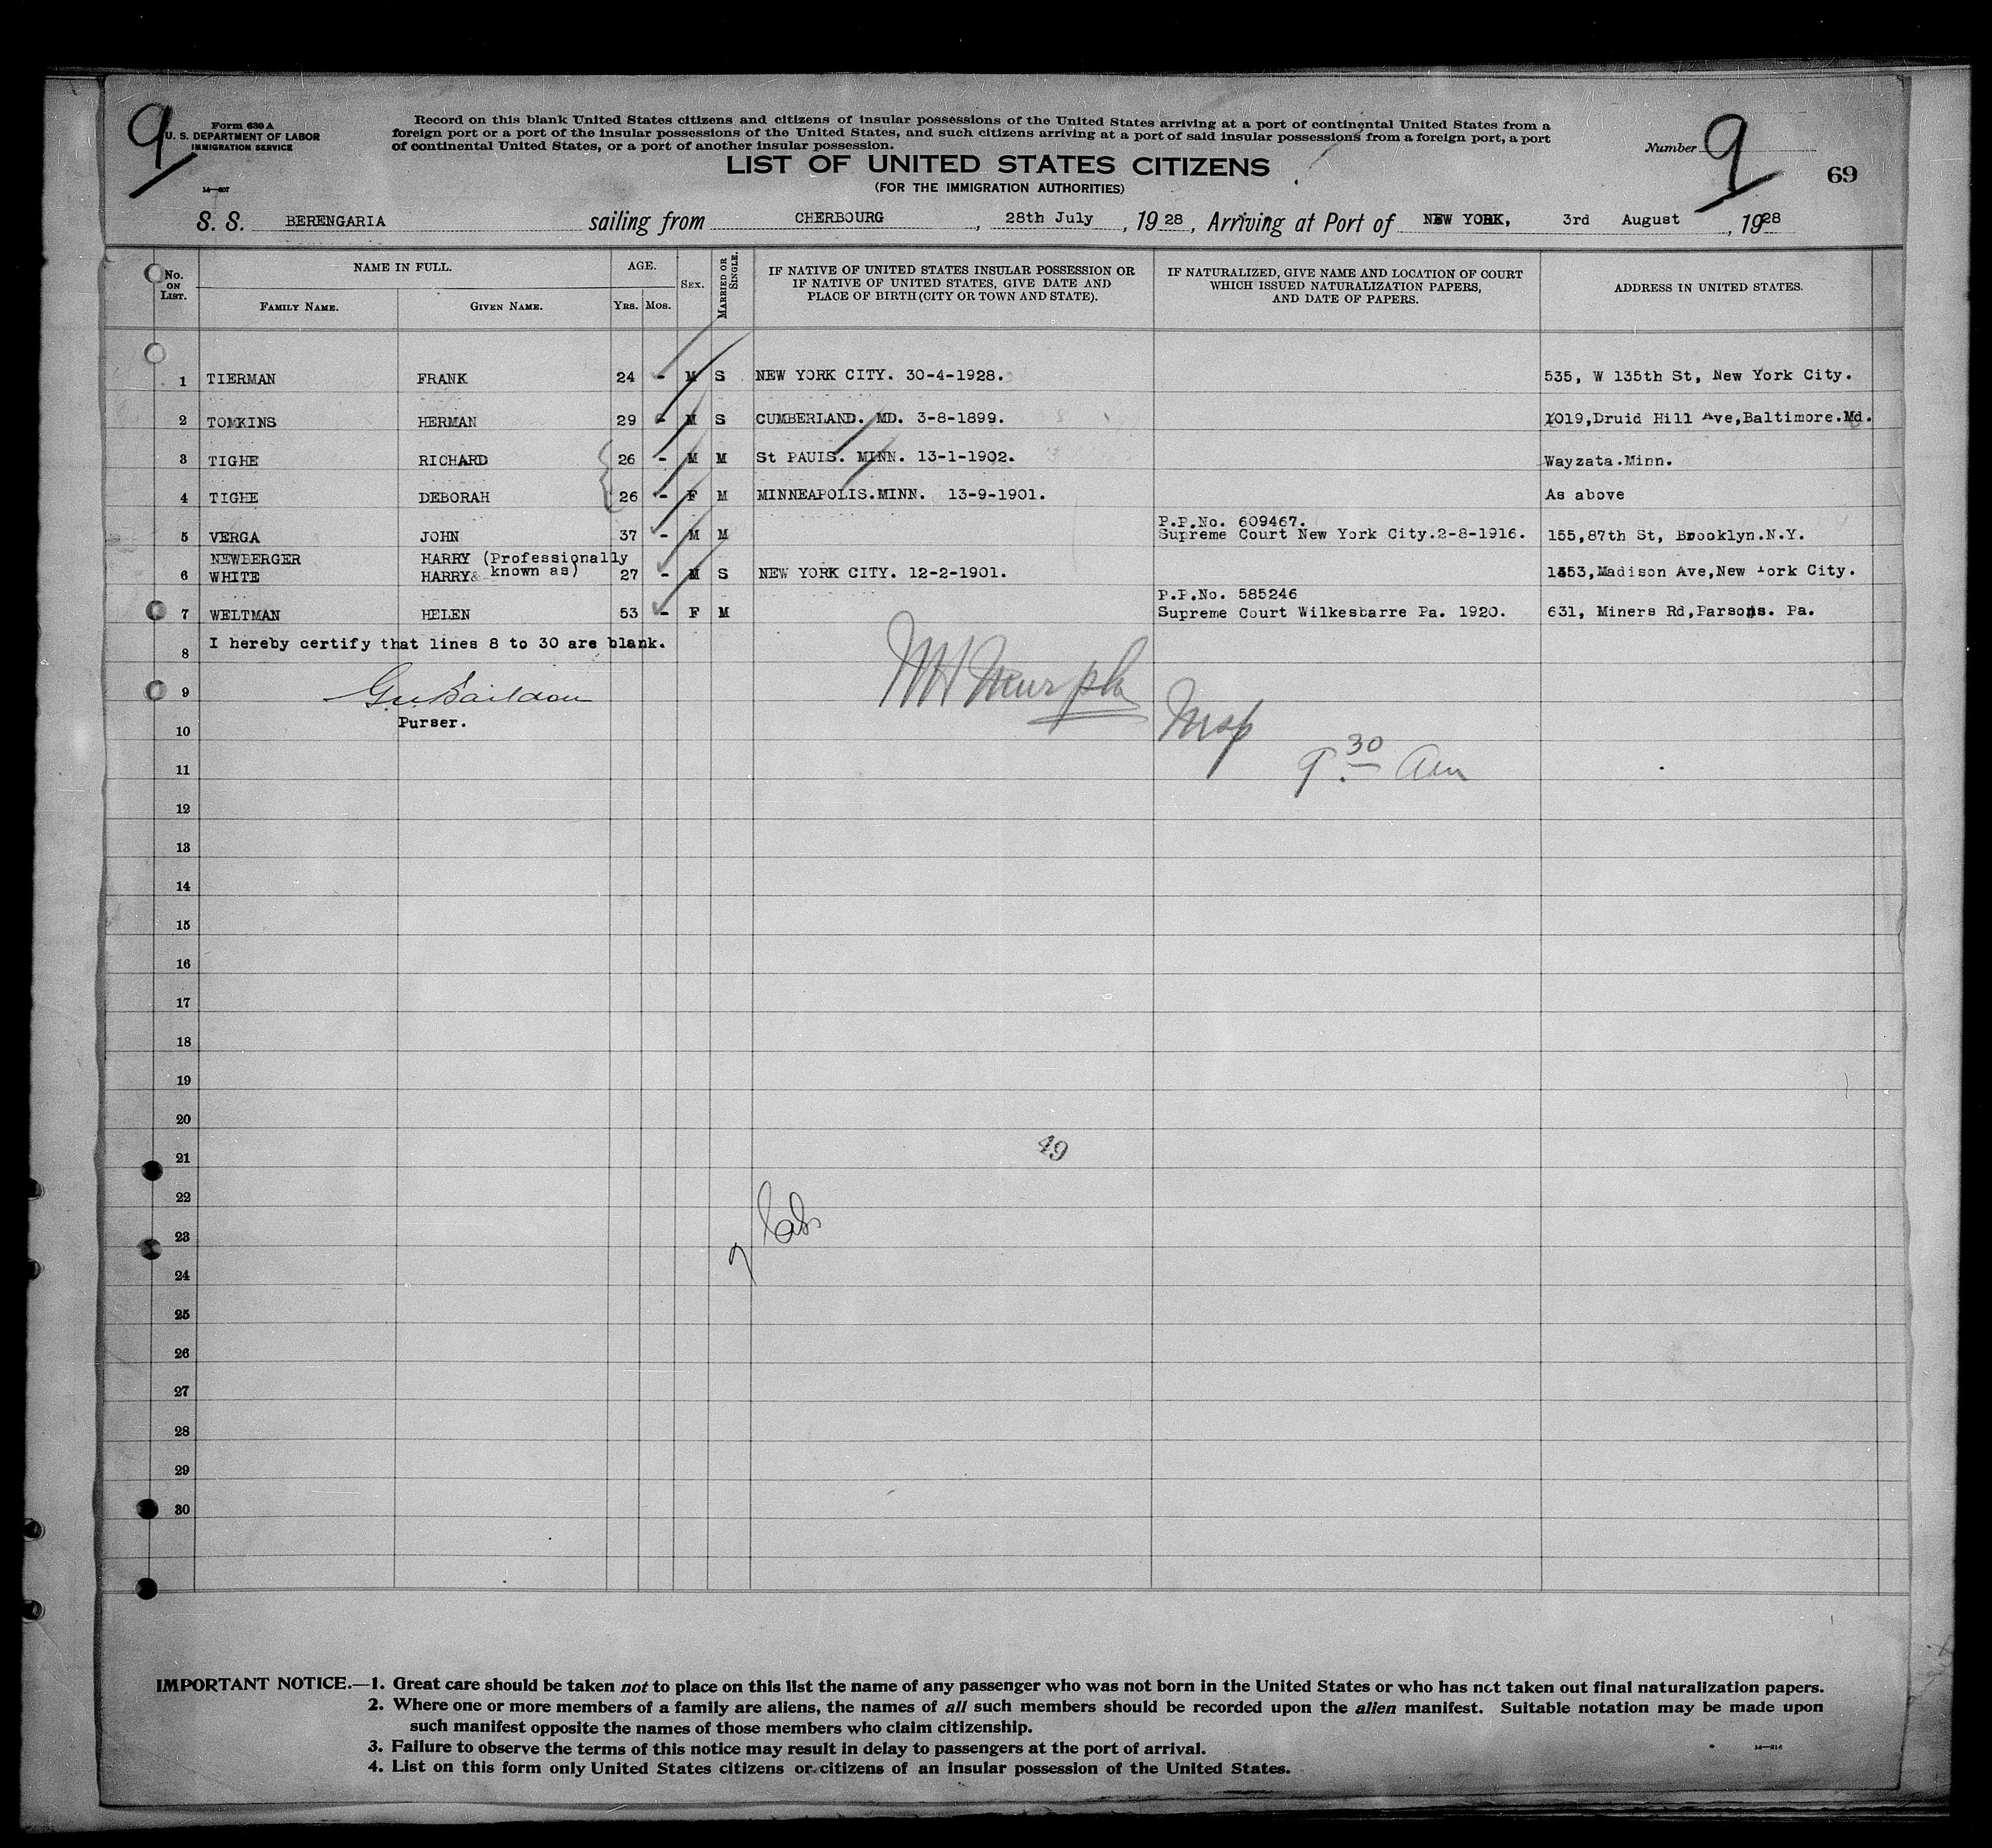 9
Form 630 A
U. S. DEPARTMENT OF LABOR
IMMIGRATION SERVICE
Record on this blank United States citizens and citizens of insular possessions of the United States arriving at a port of continental United States from a
foreign port or a port of the insular possessions of the United States, and such citizens arriving at a port of said insular possessions from a foreign port, a port
of continental United States, or a port of another insular possession.
Number 9
69
LIST OF UNITED STATES CITIZENS
(FOR THE IMMIGRATION AUTHORITIES)
S. S. BERENGARIA sailing from CHERBOURG, 28th July, 1928, Arriving at Port of NEW YORK, 3rd August, 1928
No. ON LIST. NAME IN FULL. FAMILY NAME. GIVEN NAME. AGE. YRS. MOS. SEX. MARRIED OR SINGLE. IF NATIVE OF UNITED STATES INSULAR POSSESSION OR IF NATIVE OF UNITED STATES, GIVE DATE AND PLACE OF BIRTH (CITY OR TOWN AND STATE). IF NATURALIZED, GIVE NAME AND LOCATION OF COURT WHICH ISSUED NATURALIZATION PAPERS, AND DATE OF PAPERS. ADDRESS IN UNITED STATES.
1 TIERMAN FRANK 24 - M S NEW YORK CITY. 30-4-1928. 535, W 135th St, New York City.
2 TOMKINS HERMAN 29 - M S CUMBERLAND. MD. 3-8-1899. 1019,Druid Hill Ave,Baltimore.Md.
3 TIGHE RICHARD 26 - M M St PAUIS. MINN. 13-1-1902. Wayzata.Minn.
4 TIGHE DEBORAH 26 - F M MINNEAPOLIS.MINN. 13-9-1901. As above
P.P.No. 609467.
5 VERGA JOHN 37 - M M Supreme Court New York City.2-8-1916. 155,87th St, Brooklyn.N.Y.
NEWBERGER HARRY (Professionally
6 WHITE HARRY& known as) 27 - M S NEW YORK CITY. 12-2-1901. 1353,Madison Ave,New York City.
P.P.No. 585246
7 WELTMAN HELEN 53 - F M Supreme Court Wilkesbarre Pa. 1920. 631, Miners Rd,Parsons. Pa.
8 I hereby certify that lines 8 to 30 are blank.
9
Purser.
10
9.30 Am
11
12
13
14
15
16
17
18
19
20
49
21
22
23
24
25
26
27
28
29
30
IMPORTANT NOTICE.—1. Great care should be taken not to place on this list the name of any passenger who was not born in the United States or who has not taken out final naturalization papers.
2. Where one or more members of a family are aliens, the names of all such members should be recorded upon the alien manifest. Suitable notation may be made upon
such manifest opposite the names of those members who claim citizenship.
3. Failure to observe the terms of this notice may result in delay to passengers at the port of arrival.
4. List on this form only United States citizens or citizens of an insular possession of the United States.